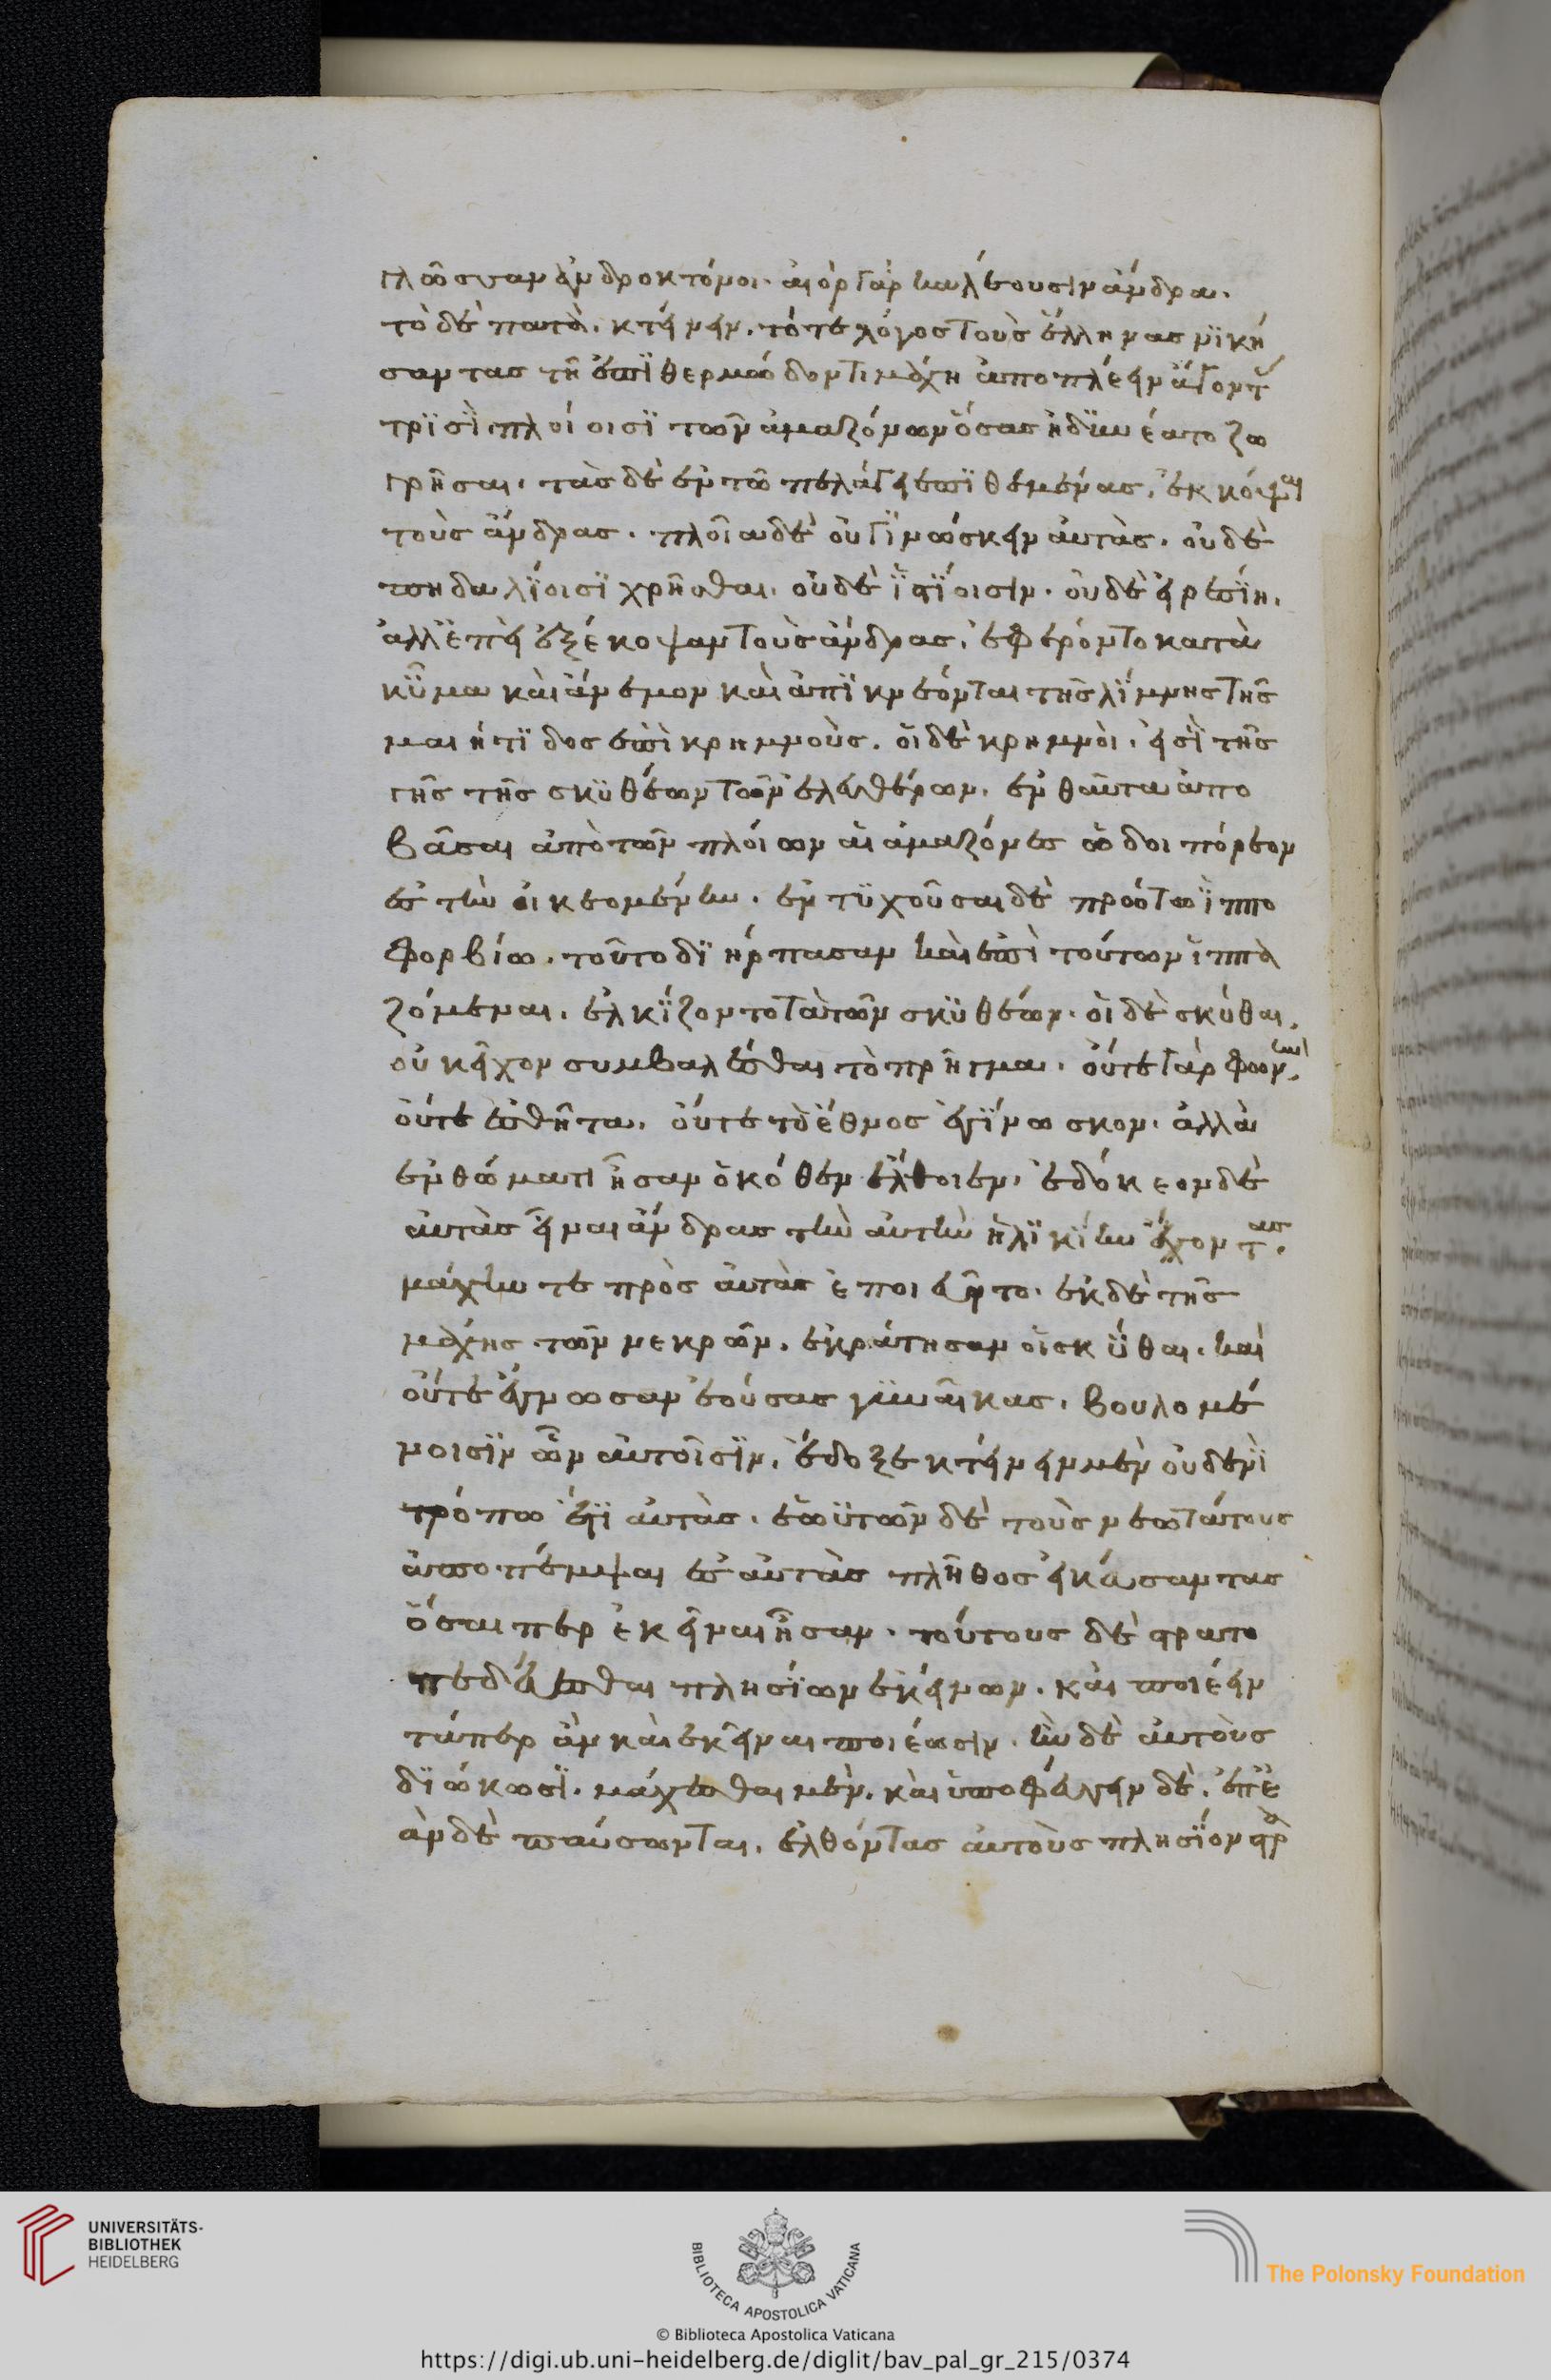 γλῶσσαν ἀνδροκτόνοι· αἰὸρ γὰρ καλέουσιν ἄνδρα·
τὸ δὲ πατὰ, κτείνειν. τότε λόγος τοὺς ἕλληνας νϊκή
σαντας τῆ ἐπὶ θερμώδοντι μάχη ἀποπλέειν ἄγοντ
τρϊσὶ πλοίοισϊ τῶν ἀμαζόνων ὅσας ἠδϋνέατο ζω
γρῆσαι· τὰς δὲ ἐν τῶ πελάγει ἐπϊθεμένας, ἐκκόψαι
τοὺς ἄνδρας. πλοῖα δὲ οὐ γϊνώσκειν αὐτὰς. οὐδὲ
πηδαλΐοισϊ χρῆσθαι. οὐδὲ ἱστΐοισιν. οὐδὲ εἰρεσΐη.
ἀλλ' ἐπεὶ ἐξέκοψαν τοὺς ἄνδρας, ἐφέροντο κατὰ
κῦμα καὶ ἄνεμον καὶ ἀπϊκνέονται τῆς λΐμνης τῆς
μαιήτϊδος ἐπὶ κρημνοὺς. οἱ δὲ κρημνοὶ, εἰσὶ τῆς
γῆς τῆς σκϋθέων τῶν ἐλευθέρων. ἐνθαῦτα ἀπο
βᾶσαι ἀπὸ τῶν πλοίων αἱ ἀμαζόνες ὡδοιπόρεον
ἐς τὴν οἰκεομένην. ἐντϋχοῦσαι δὲ πρώτω ἱππο
φορβίω. τοῦτο δϊήρπασαν καὶ ἐπὶ τούτων ἱππα
ζόμεναι, ἐλκΐζοντο τὰ τῶν σκϋθέων. οἱ δὲ σκύθαι,
οὐκ εἶχον συμβαλέσθαι τὸ πρῆγμα. οὔτε γὰρ φωνὴν,
οὔτε ἐσθῆτα, οὔτε τὸ ἔθνος ἐγΐνωσκον. ἀλλὰ
ἐν θώματι ἦσαν ὁκόθεν ἔλθοιεν, ἐδόκεον δὲ
αὐτὰς εἶναι ἄνδρας τὴν αὐτὴν ἡλϊκίην ἔχοντας.
μάχην τε πρὸς αὐτὰς ἐποιεῦντο. ἐκ δὲ τῆς
μάχης τῶν νεκρῶν, ἐκράτησαν οἱ σκΰθαι. καὶ
οὕτε ἔγνωσαν ἐούσας γϋναῖκας. βουλομέ
νοισϊν ὦν αὐτοῖσϊν, ἔδοξε κτείνειν μὲν οὐδενὶ
τρόπω ἔτϊ αὐτὰς. ἑωϋτῶν δὲ τοὺς νεωτάτους
ἀποπέμψαι ἐς αὐτὰς πλῆθος εἰκάσαντας
ὅσαι περ ἐκεῖναι ἦσαν. τούτους δὲ στρατο
πεδεύεσθαι πλησΐων ἐκείνων. καὶ ποιέειν
τάπερ ἂν καὶ ἐκεῖναι ποιέωσιν. ἢν δὲ αὐτοὺς
δϊώκωσϊ. μάχεσθαι μὲν, καὶ ὑποφεύγειν δὲ, ἐπε
ὰν δὲ παύσωνται, ἐλθόντας αὐτοὺς πλησΐον στρα
UNIVERSITÄTS-
BIBLIOTHEK
HEIDELBERG
BIBLIOTECA APOSTOLICA VATICANA
The Polonsky Foundation
© Biblioteca Apostolica Vaticana
https://digi.ub.uni-heidelberg.de/diglit/bav_pal_gr_215/0374